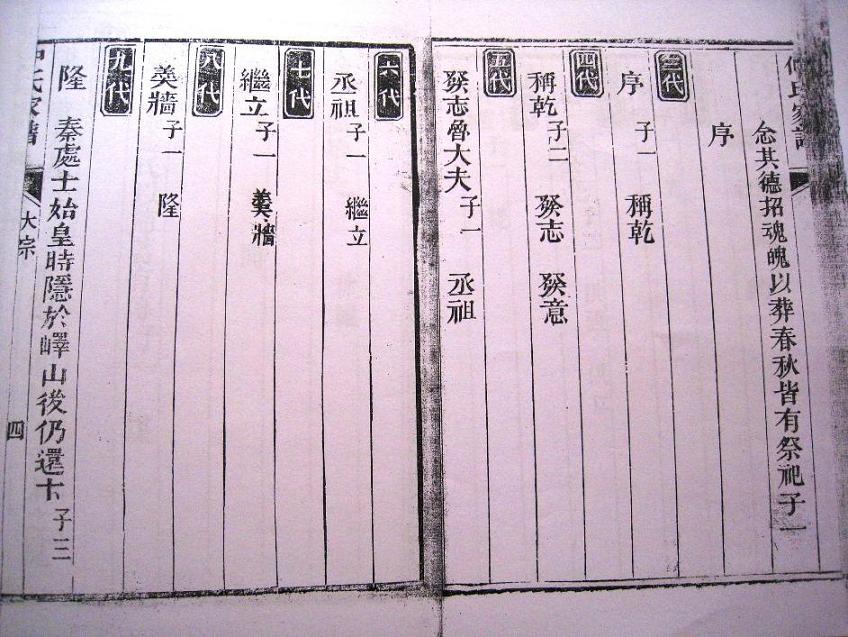 仲氏家譜
念其德招魂魄以葬春秋皆有祭祀子一
序
三代
序 子一 稱乾
四代
稱乾 子二 發志 發意
五代
發志魯大夫 子一 丞祖
六代
丞祖 子一 繼立
七代
繼立 子一 羮牆
八代
羮牆 子一 隆
九代
隆 秦處士始皇時隱於嶧山後仍還卞 子三
氏家譜 大宗 四